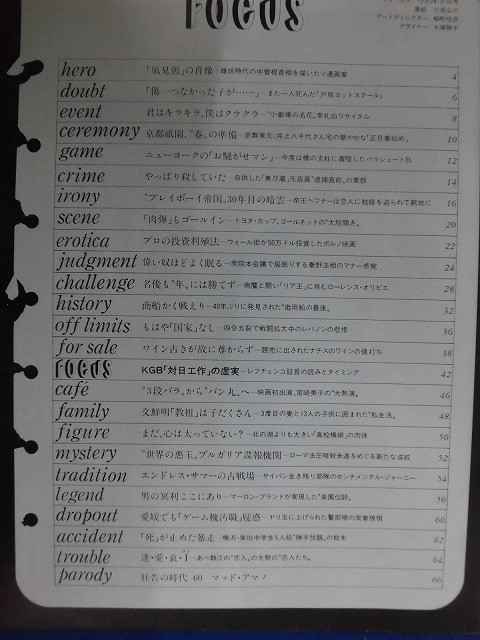 FOCUS
12月24・31日号
表紙 三尾公三
アートディレクター
デザイナー
hero 「風見鶏」の肖像―雌伏時代の中曽根首相を描いたソ連画家 4
doubt 「傷一つなかった子が……」―また一人死んだ「戸塚ヨットスクール」 6
event 君はキラキラ、僕はクラクラ―“小劇場の名花、李礼仙リサイタル 8
ceremony 京都祇園、“春〟の準備―京舞家元、井上八千代さん宅の華やかな「正月事始め」 10
game ニューヨークの「お騒がせマン」―今度は橋の支柱に着陸したパラシュート狂 12
crime やっぱり殺していた―自供した「無尽蔵」元店員“逮捕直前〟の素顔 14
irony “プレイボーイ帝国〟30年目の暗雲―帝王ヘフナーは恋人に結婚を迫られて窮地に 16
scene 「肉弾」もゴールイン―トヨタ・カップ、ゴールネットの“大股開き〟 20
erotica プロの投資利殖法―ウォール街が50万ドル投資したポルノ映画 22
judgment 偉い奴ほどよく眠る―衆院本会議で居眠りする秦野法相のマナー感覚 24
challenge 名優も“年〟には勝てず―病魔と闘い「リア王」に挑むローレンス・オリビエ 28
history 商船かく戦えり―40年ぶりに発見された“徴用船の最後〟 32
off limits もはや「国家」なし―四分五裂で戦闘拡大中のレバノンの悲惨 36
for sale ワイン古きが故に尊からず―競売に出されたナチスのワインの値打ち 38
FOCUS KGB「対日工作」の虚実―レフチェンコ証言の読みとタイミング 42
café “3段バラ〟から“パン丸〟へ―映画初出演、宮崎美子の“大熱演〟 46
family 文鮮明「教祖」は子だくさん―3度目の妻と13人の子供に囲まれた“私生活〟 48
figure まだ、心は太っていない？―北の湖よりも大きい「高校横綱」の肉体 50
mystery “世界の悪玉〟ブルガリア諜報機関―ローマ法王暗殺未遂をめぐる新たな波紋 52
tradition エンドレス・サマーの古戦場―サイパン生き残り部隊のセンチメンタル・ジャーニー 54
legend 男の冥利ここにあり―マーロン・ブランドが実現した“楽園伝説〟 56
dropout 愛媛でも「ゲーム機汚職」疑惑―ヤリ玉に上げられた警部補の周章狼狽 60
accident 「死」が止めた暴走―横浜・家出中学生5人組“勝手放題〟の結末 62
trouble 逢・愛・哀・I―あべ静江の“恋人〟の大勢の“恋人たち〟 64
parody 狂告の時代 60 マッド・アマノ 66